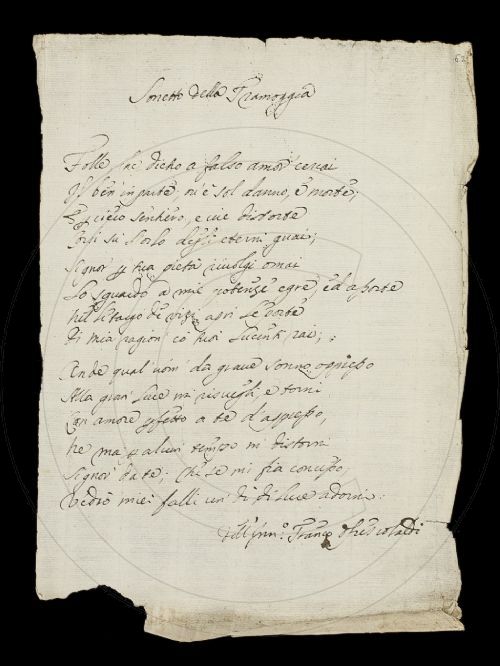 62
Sonetto della Tramoggia
Folle dietro a falso amor cercai
Il ben in parte, ov'è sol danno, e morte;
cieco sentiero, e vie distorte
Corsi su l'orlo degl'eterni guai;
Signor p tua pietà rivolgi omai
Lo sguardo a mie potenze egre, ed assorte
nel letargo de vizi, apri le porte
Di mia ragion co tuoi lucenti rai;
Onde qual uom da grave sonno oppresso
Alla gran luce mi risvegli, e torni
Con amore pfetto a te d'appresso,
Ne mai p alcun tempo mi distorni
Signor da te; Che se mi fia concesso,
Vedrò miei falli un dì di luce adorni.
Dell' Franco Frescobaldi